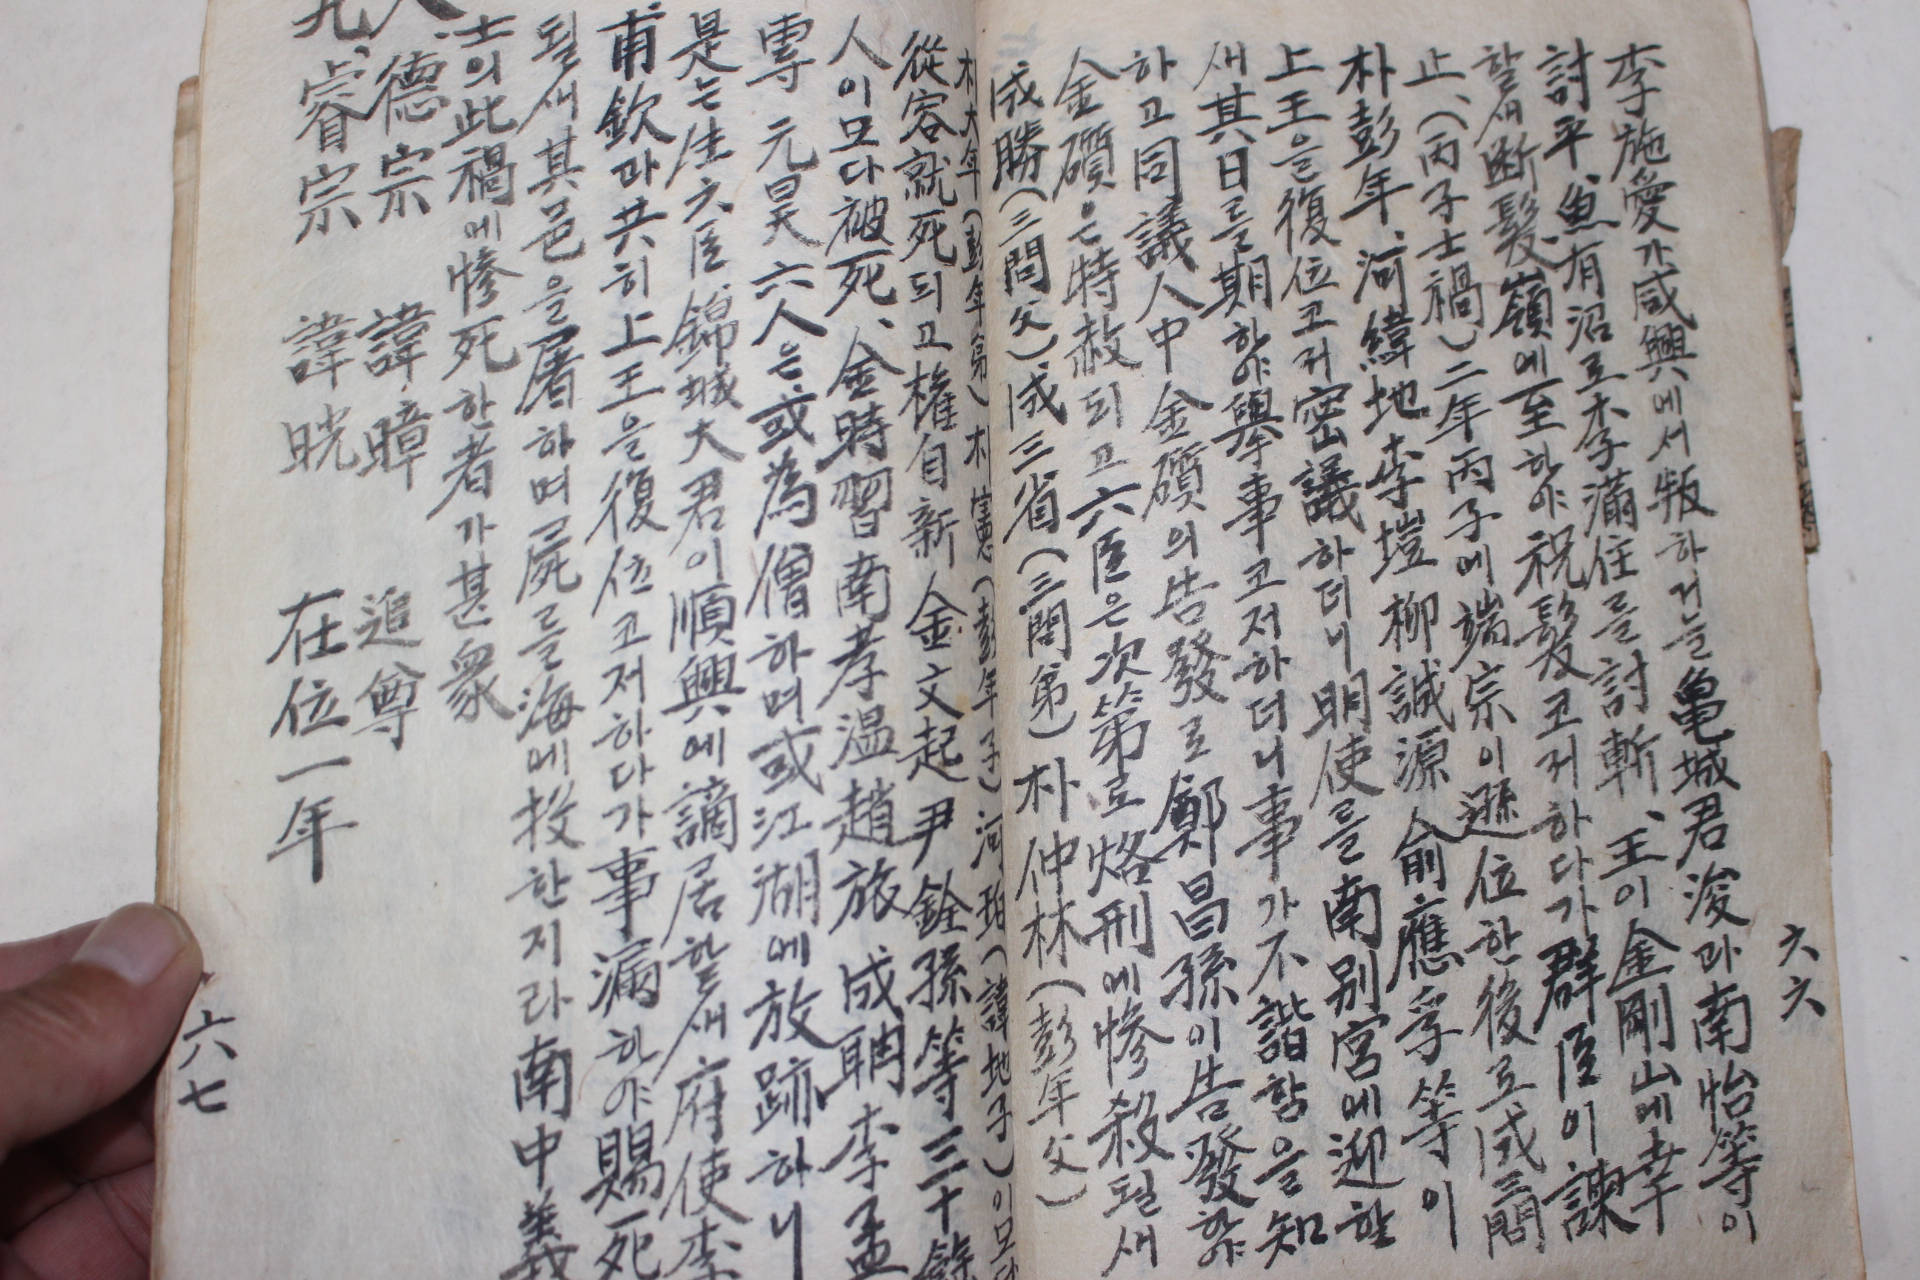 六六
李施愛가咸興에서叛하거늘龜城君浚과南怡等이
討平、魚有沼로李滿住를討斬、王이金剛山에幸
할새断髮嶺에至하야祝髮코저하다가群臣이諫
止、(丙子士禍)二年丙子에端宗이遜位한後로成三問
朴彭年、河緯地李塏柳誠源兪應孚等이
上王을復位코저密議하더니明使를南别宮에迎할
새其日를期하야擧事코저하더니事가不諧함을知
하고同議人中金礩의告發로鄭昌孫이告發하야
金礩은特赦되고六臣은次第로烙刑에慘殺될새
成勝(三問父)成三省(三問第)朴仲林(彭年父)
朴大年(彭年第)朴憲(彭年子)河珀(緯地子)이모다
從容就死되고權自新金文起尹鈴孫等三十餘
人이모다被死、金時習南孝溫趙旅成聃李孟
專元昊六人은或為僧하며或江湖에放跡하니
是는生六臣、錦城大君이順興에謫居할새府使李
甫欽과共히上王을復位코저하다가事漏하야賜死
될새其邑을屠하며屍를海에投한지라南中義
士의此禍에慘死한者가甚衆
德宗 諱暲 追尊
睿宗 諱晄 在位一年
六七